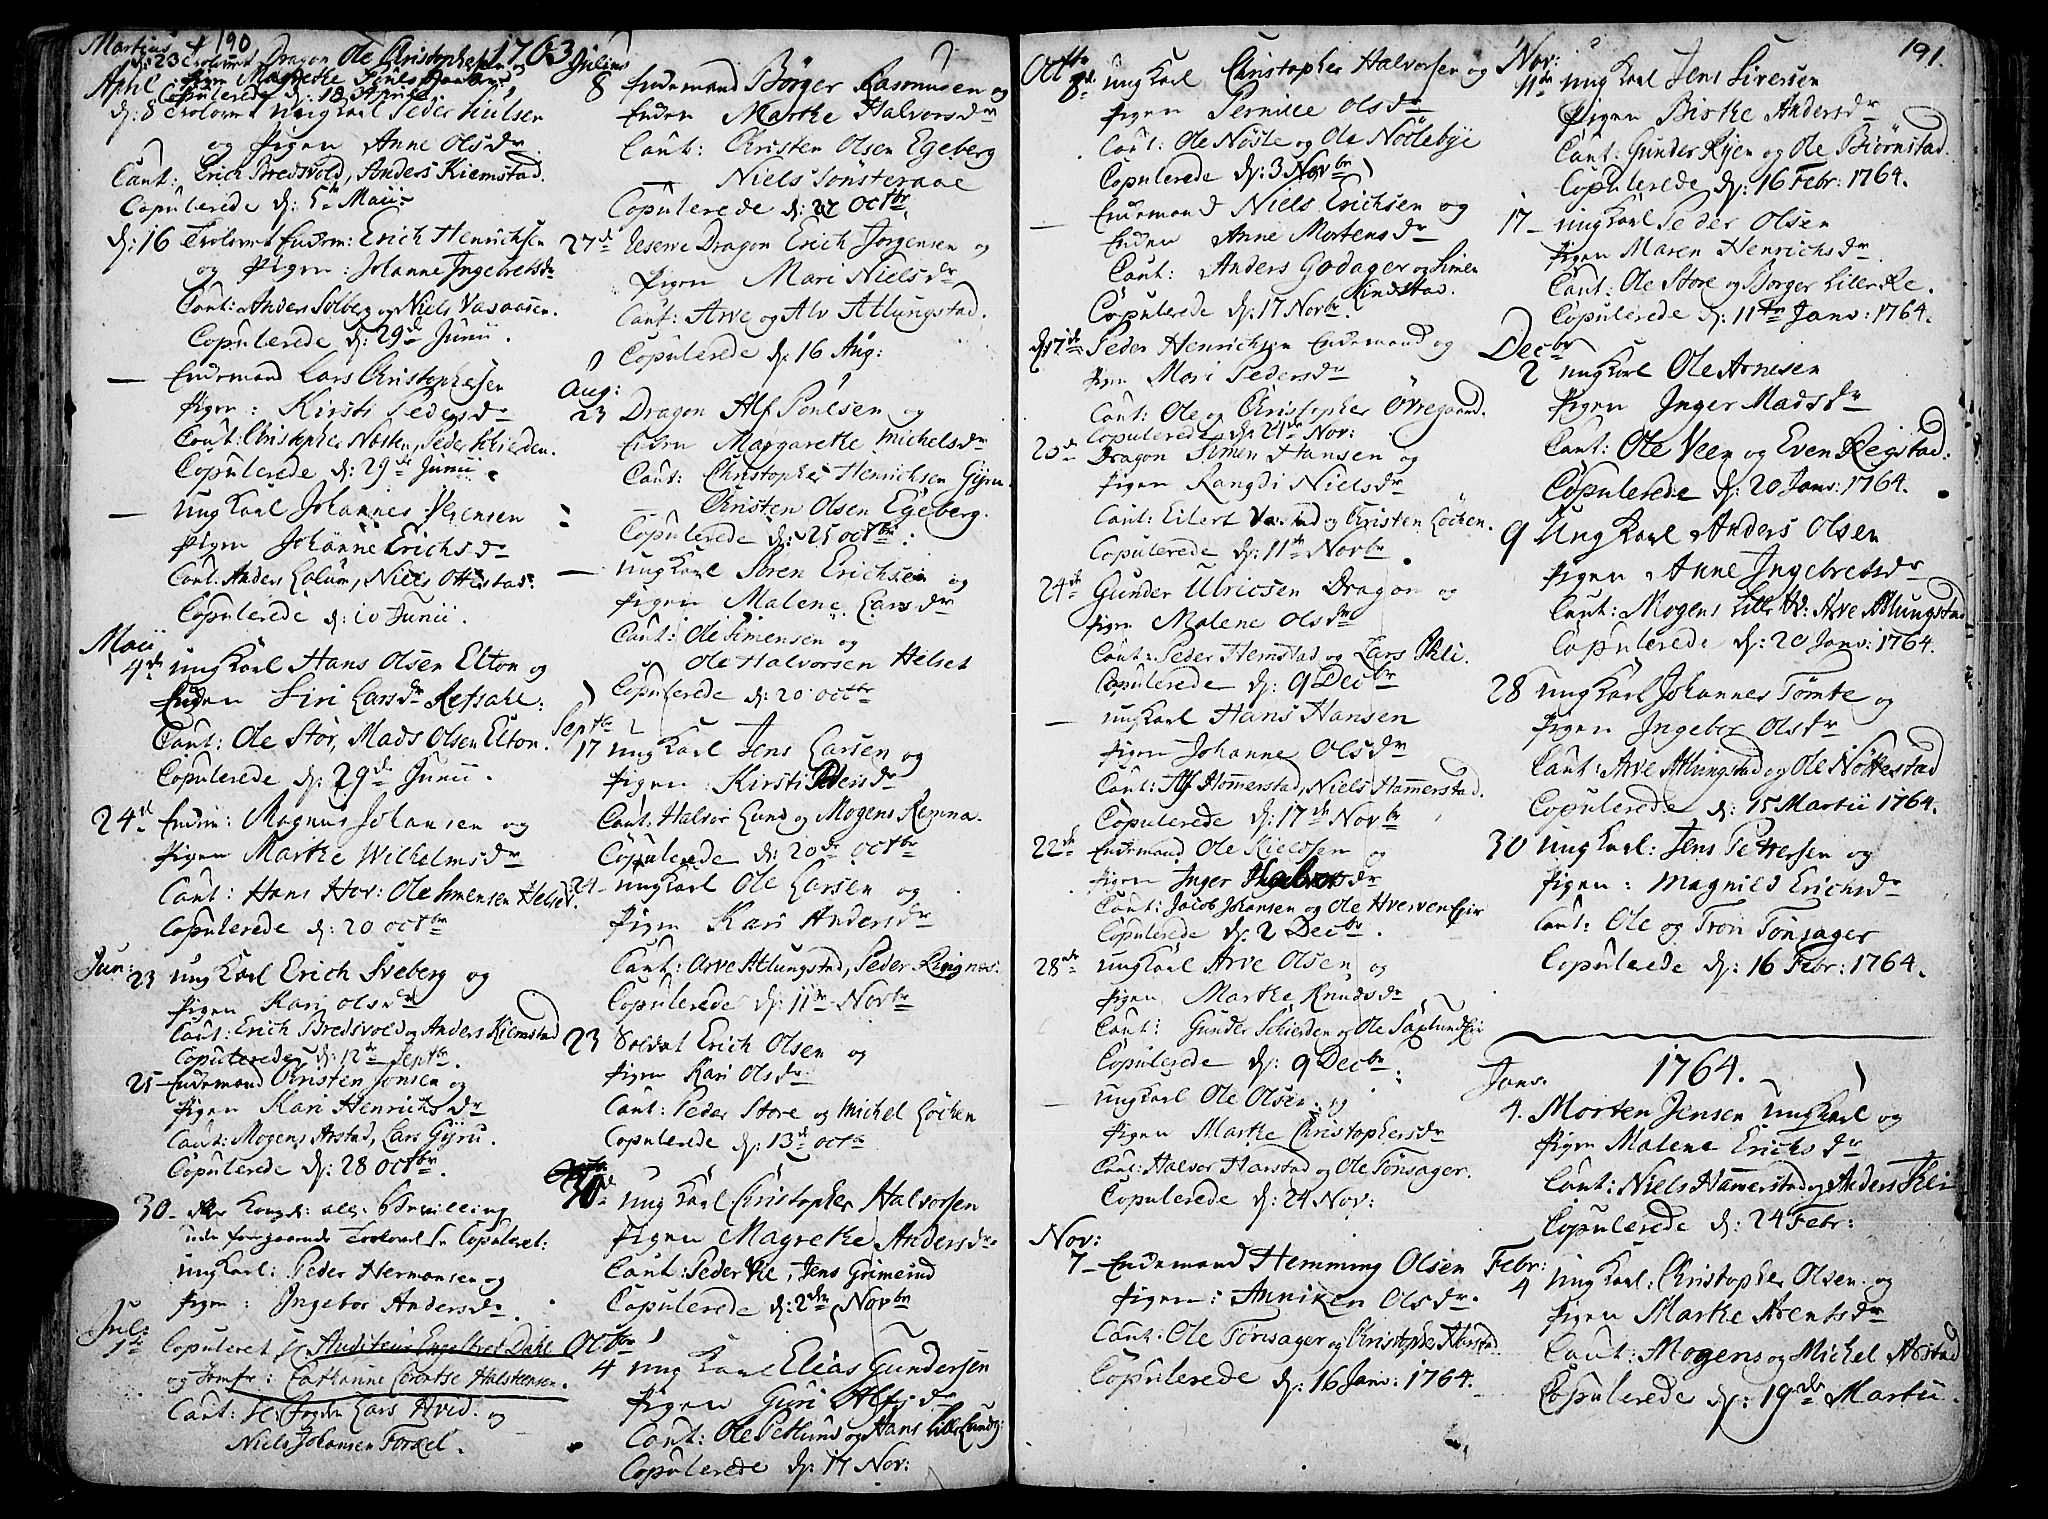 190
1763
Martius
d: 23 Trolovet Dragon Ole Christophersen
Pigen Magrethe
Copulerede d: 18 Aprile
April
d: 8 Trolovet Ung Karl Peder Nielsen
og Pigen Anne Olsdr
Caut: Erich Bredsvold, Anders Kiemstad.
Copulerede d: 5te Maii
d: 16 Trolovet Enkem: Erich Henrichsen
og Pigen: Johanne Ingebretsdr
Caut: Anders Solberg og Niels Vasaasen.
Copulerede d: 29de Junii.
— Enkemand Lars Christophersen
Pigen: Kirsti Pedersdr
Caut: Christopher Nosten, Peder Schierden.
Copulerede d: 29de Junii
— Ung Karl Johannes Iversen
Pigen Johanne Erichsdr
Caut: Anders Lolum, Niels Ottestad.
Copulerede d: 10 Junii.
Maii
4de Ung Karl Hans Olsen Elton og
Enken Siri Larsdr Refsahl:
Caut: Ole Stor, Mads Olsen Elton.
Copulerede d: 29de Junii.
24de Enkem: Magnus Johansen og
Pigen Marthe Wilhelmsdr
Caut: Hans Hov: Ole Simensen Helset.
Copulerede d: 20 Octbr
Jun:
23 Ung Karl Erich Sveberg og
Pigen Kari Olsdr
Caut: Erich Bredsvold og Anders Kiemstad
Copulerede d: 12te Septbr.
25 Enkemand Christen Jonsen og
Pigen Kari Henrichsdr
Caut: Mogens Arstad, Lars Gijru.
Copulerede d: 28 Octbr.
30 efter Kongel: all: Bevilling
uden foregaaende Trolovel se Copuleret:
Ung Karl: Peder Hermansen og
Pigen: Ingebor Andersdr
Jul:
1te Copuleret Hr Auditeur Engelbret Dahl
og Jomfr: Cathrine Halsteensen.
Caut: Lars Hvid og
Niels Johansen Forkel.
Julius
8 Enkemand Börger Rasmusen og
Enken Marthe Halvorsdr
Caut: Christen Olsen Egeberg
— Niels Sonsteraae
Copulerede d: 27 Octbr.
27de Reserve Dragon Erich Jörgensen og
Pigen Mari Nielsdr
Caut: Arve og Alv Atlungstad.
Copulerede d: 16 Aug:
Aug:
23 Dragon Alf Poulsen og
Enken Margarethe Michelsdr
Caut: Christopher Henrichsen Gijru
— Christen Olsen Egeberg.
Copulerede d: 25 Octbr:
— Ung Karl Soren Erichsen og
Pigen Malene Larsdr
Caut: Ole Simensen og
Ole Halvorsen Helset
Copulerede d: 20 Octbr
Septbr
17 Ung Karl Jens Larsen og
Pigen Kirsti Pedersdr
Caut: Halvor Lund og Mogens Remna.
Copulerede d: 20de Octbr
24 Ung Karl Ole Larsen og
Pigen Kari Andersdr
Caut: Arve Atlungstad, Peder Ringnes.
Copulerede d: 11te Novbr
23 Soldat Erich Olsen og
Pigen Kari Olsdr
Caut: Peder Store og Michel Löchen
Copulerede d: 13de Octbr
30de Ung Karl Christopher Halvorsen
Pigen Magrethe Andersdr
Caut: Peder Vie, Jens Grimerud
Copulerede d: 2den Novbr
Octbr
4 Ung Karl Elias Gundersen
Pigen Guri Alfsdr
Caut: Ole Petlund og Hans Lille Lundg:
Copulerede d: 17 Nov:
191.
Octbr
8de Ung Karl Christopher Halvorsen og
Pigen Pernille Olsdr
Caut: Ole Nösle og Ole Nöttebye
Copulerede d: 3 Novbr
— Enkemand Niels Erichsen og
Enken Anne Mortensdr
Caut: Anders Godager og Simen
Kindstad.
Copulerede d: 17 Novbr.
d: 17de Peder Henrichsen Enkemand og
Pigen Mari Pedersdr
Caut: Ole og Christopher Övregaard.
Copulerede d: 24de Nov:
20de Dragon Simen Hansen og
Pigen Rangdi Nielsdr
Caut: Eilert og Christen Löchen.
Copulerede d: 11te Novbr
24de Gunder Ulricsen Dragon og
Pigen Malene Olsdr
Caut: Peder Hemstad og Lars Phli.
Copulerede d: 9 Decbr
— Ung Karl Hans Hansen
Pigen Johanne Olsdr
Caut: Alf Hommerstad, Niels Hammerstad.
Copulerede d: 17de Novbr
22de Enkemand Ole Kieldsen og
Pigen Inger Halvorsdr
Caut: Jacob Johansen og Ole Hverven Eir
Copulerede d: 2 Decbr.
28de Ung Karl Arve Olsen og
Pigen Marthe Knudsdr
Caut: Gunder Schierden og Ole Saxlund Eir
Copulerede d: 9 Decbr:
— Ung Karl Ole Olsen og
Pigen Marthe Christophersdr
Caut: Halvor Harstad og Ole Tönsager.
Copulerede d: 24 Nov:
Nov:
7 Enkemand Hemming Olsen
Pigen: Anniken Olsdr.
Caut: Ole Tönsager og Christopher Harstad.
Copulerede d: 16 Janv: 1764.
Nov:
11te Ung Karl Jens Siversen
Pigen Birthe Andersdr
Caut: Gunder Ryen og Ole Biörnstad.
Copulerede d: 16 Febr: 1764.
17 Ung Karl Peder Olsen
Pigen Maren Henrichsdr.
Caut: Ole Store og Börger Lille Re.
Copulerede d: 11te Janv: 1764.
Decbr
2 Ung Karl Ole Arnesen
Pigen Inger Madsdr
Caut: Ole Veen og Even Regstad:
Copulerede d: 20 Janv: 1764.
9 Ung Karl Anders Olsen
Pigen Anne Ingebretsdr
Caut: Mogens Lille Ad: Arve Atlungstad
Copulerede d: 20 Janv: 1764.
28 Ung Karl Johannes Tömte og
Pigen Ingebor Olsdr
Caut: Arve Atlungstad og Ole Nöttestad
Copulerede d: 15 Martii 1764.
30 Ung Karl: Jens Pettersen og
Pigen: Magnild Erichsdr
Caut: Ole og Tron Tönsager
Copulerede d: 16 Febr: 1764.
1764.
Janv.
4. Morten Jensen Ung Karl og
Pigen Malene Erichsdr
Caut: Niels Hammerstad og Anders Phli
Copulerede d: 24 Febr:
Febr:
4 Ung Karl: Christopher Olsen og
Pigen Marthe Arentsdr
Caut: Mogens og Michel Arstad
Copulerede d: 19de Martii.